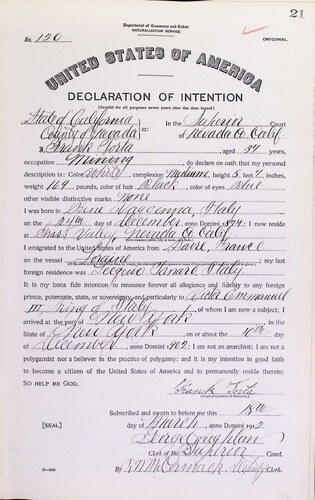 21
Department of Commerce and Labor
NATURALIZATION SERVICE
No. 120
ORIGINAL.
UNITED STATES OF AMERICA
DECLARATION OF INTENTION
(Invalid for all purposes seven years after the date hereof)
State of California
County of Nevada } ss: In the Superior Court
of Nevada Co. Calif.
I, Frank Torta, aged 37 years,
occupation Mining, do declare on oath that my personal
description is: Color White, complexion Medium, height 5 feet 7 inches,
weight 169 pounds, color of hair Black, color of eyes Blue
other visible distinctive marks None
I was born in Italy
on the 24th day of December, anno Domini 1874; I now reside
at Grass Valley, Nevada Co Calif.
I emigrated to the United States of America from Havre, France
on the vessel Loraine; my last
foreign residence was Italy
It is my bona fide intention to renounce forever all allegiance and fidelity to any foreign
prince, potentate, state, or sovereignty, and particularly to Victor Emmanuel
III, King of Italy, of whom I am now a subject; I
arrived at the port of New York, in the
State of New York on or about the 10th day
of December, anno Domini 1902; I am not an anarchist; I am not a
polygamist nor a believer in the practice of polygamy; and it is my intention in good faith
to become a citizen of the United States of America and to permanently reside therein:
SO HELP ME GOD.
Frank Torta
Subscribed and sworn to before me this 18th
[SEAL] day of March, anno Domini 1912
Clerk of the Superior Court.
By McCormack, Deputy Clerk.